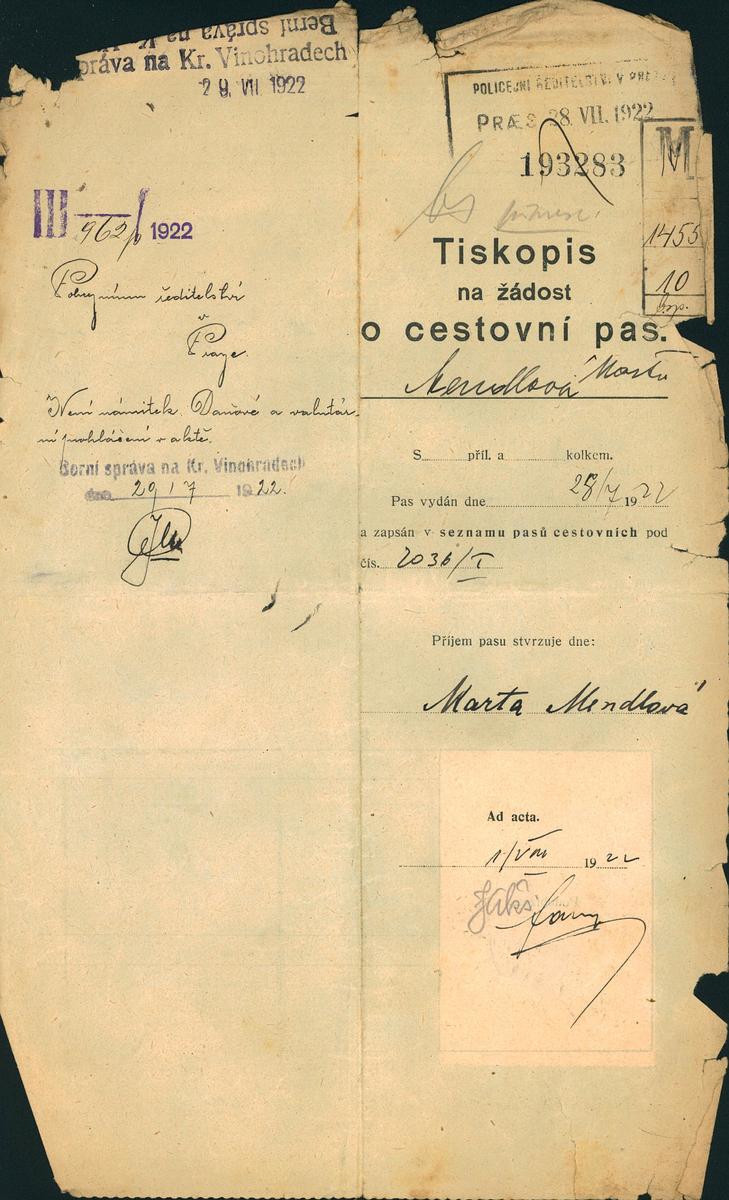 Berní správa na K
práva na Kr. Vinohradech
29. VII 1922
III 962/6 1922
Policejnímu ředitelství
v
Praze.
Není námitek. Daňové a valutár-
ní prohlášení v aktě.
Berní správa na Kr. Vinohradech
dne 29/7 1922.
POLICEJNÍ ŘEDITELSTVÍ V PRAZE
PRÆS 28. VII. 1922
193283
M
1455
10
Tiskopis
na žádost
o cestovní pas.
Mendlová Marta
S příl. a kolkem.
Pas vydán dne 28/7 1922
a zapsán v seznamu pasů cestovních pod
čís. 2036/I
Příjem pasu stvrzuje dne:
Marta Mendlová
Ad acta.
1/VIII 1922